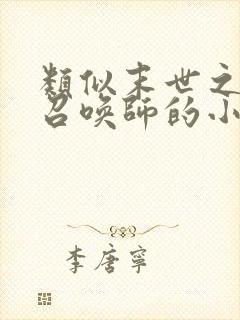 類似末世之
召喚師的小
李唐寧